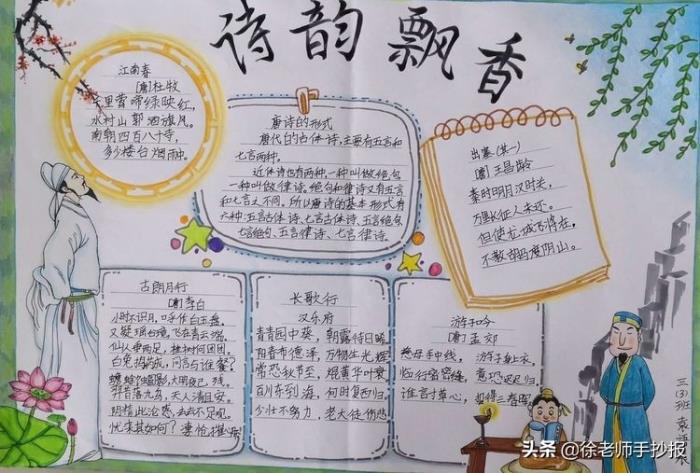 诗韵飘香
江南春
[唐]杜牧
千里莺啼绿映红,
水村山郭酒旗风。
南朝四百八十寺,
多少楼台烟雨中。
唐诗的形式
唐代的古体诗,主要有五言和
七言两种。
近体诗也有两种,一种叫做绝句,
一种叫做律诗。绝句和律诗又有五言
和七言之不同。所以唐诗的基本形式有
六种:五言古体诗、七言古体诗、五言绝句、
七言绝句、五言律诗、七言律诗。
出塞(其一)
[唐]王昌龄
秦时明月汉时关,
万里长征人未还。
但使龙城飞将在,
不教胡马度阴山。
古朗月行
[唐]李白
小时不识月,呼作白玉盘。
又疑瑶台镜,飞在青云端。
仙人垂两足,桂树何团团。
白兔捣药成,问言与谁餐?
蟾蜍蚀圆影,大明夜已残。
羿昔落九乌,天人清且安。
阴精此沦惑,去去不足观。
忧来其如何?凄怆摧
长歌行
汉乐府
青青园中葵,朝露待日晞
阳春布德泽,万物生光辉
常恐秋节至,焜黄华叶衰
百川东到海,何时复西归
少壮不努力,老大徒伤悲
游子吟
[唐]孟郊
慈母手中线,游子身上衣
临行密密缝,意恐迟迟归
谁言寸草心,报得三春晖
三(3)班
袁
头条 @徐老师手抄报